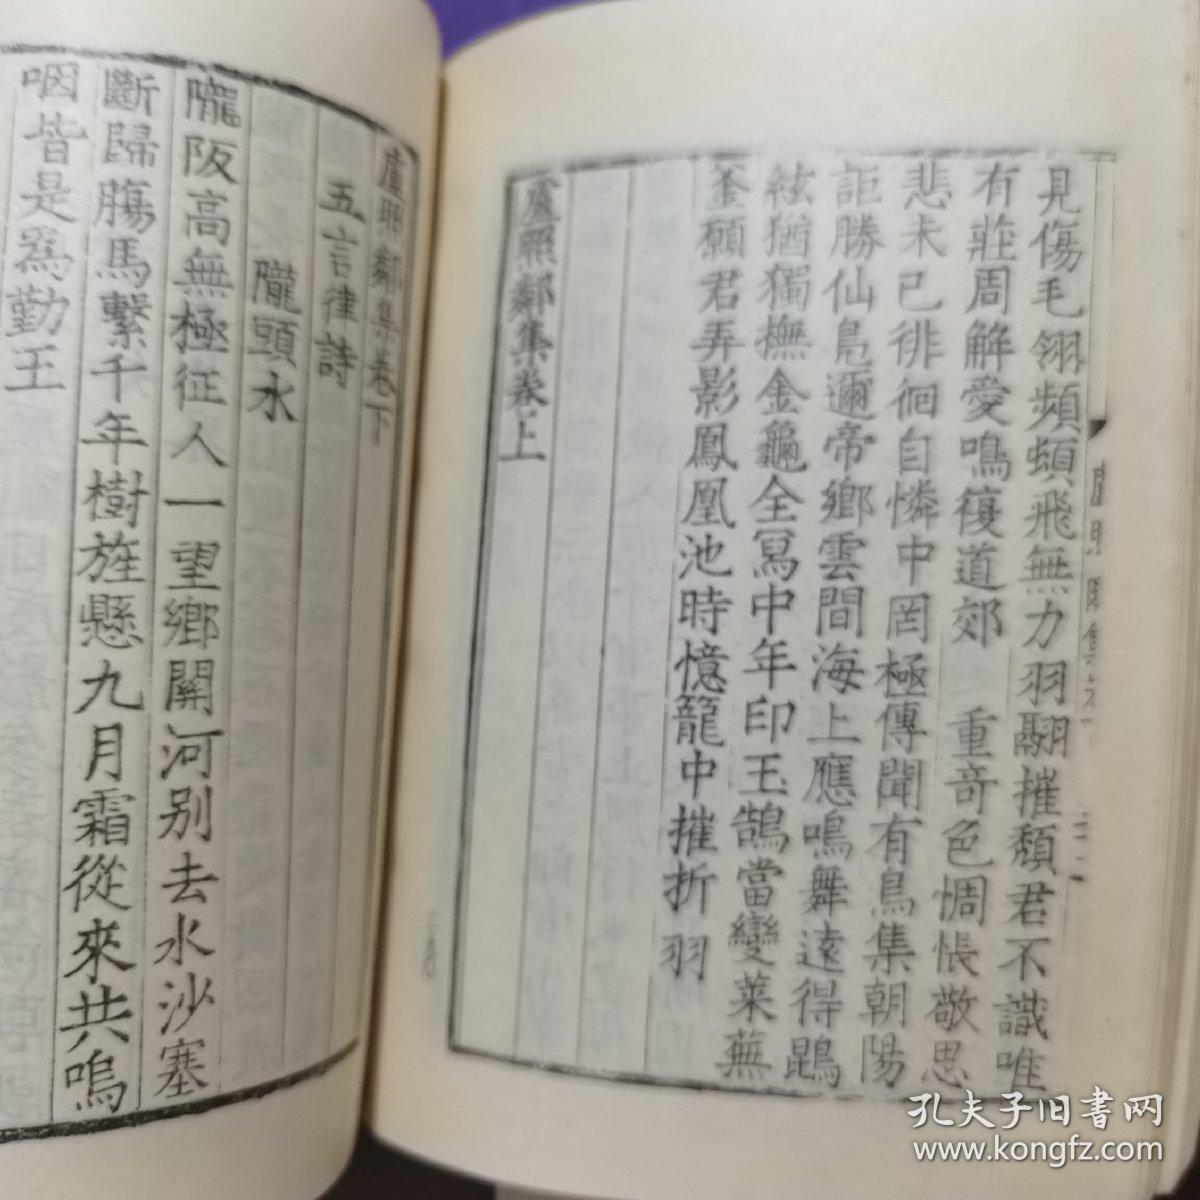 見傷毛翎頻頓飛無力羽翮摧頹君不識唯
有莊周解愛鳴復道郊 重奇色惆悵敬思
悲未已徘徊自憐中罔極傳聞有鳥集朝陽
詎勝仙鳧邇帝鄉雲間海上應鳴舞遠得鵾
絃猶獨撫金龜全冩中年印玉鵠當變萊蕪
釜願君弄影鳳凰池時憶籠中摧折羽
盧照鄰集卷上
盧照鄰集卷下
五言律詩
隴頭水
隴阪高無極征人一望鄉關河别去水沙塞
斷歸腸馬繫千年樹旌懸九月霜從來共嗚
咽皆是爲勤王
孔夫子旧书网
www.kongfz.com